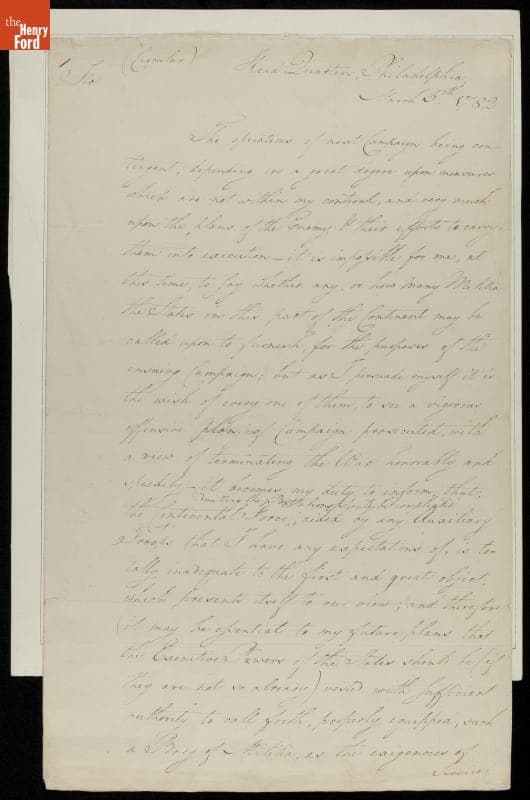 the
Henry
Ford
(Circular)
Head Quarters, Philadelphia,
Sir
March 5th 1782
The operations of next Campaign being con-
tingent, depending in a great degree upon measures
which are not within my controul, and very much
upon the plans of the Enemy & their efforts to carry
them into execution – it is impossible for me, at
this time, to say whether any, or how many Militia
the States in this part of the Continent may be
called upon to furnish, for the purposes of the
ensuing Campaign; but as I persuade myself it is
the wish of every one of them, to see a vigorous
offensive plan of Campaign prosecuted, with
a view of terminating the War honorably and
speedily – it becomes my duty to inform, that,
admitting the Battalions should be compleat
the Continental Force, aided by any Auxiliary
Troops that I have any expectations of, is to-
tally inadequate to the first and great object,
which presents itself to our view; and therefore
it may be essential to my future plans that
the Executive Powers of the States should be (if
they are not so already) vested with sufficient
authority to call forth, properly equipped, such
a Body of Militia, as the exigencies of
Service